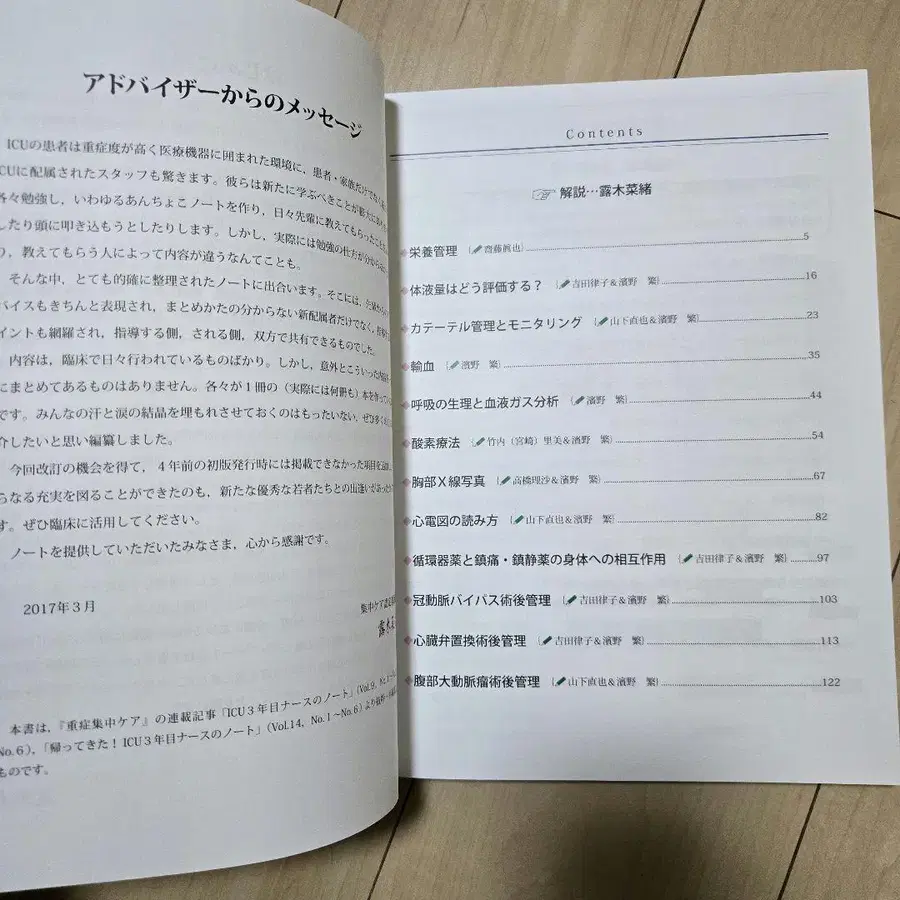 アドバイザーからのメッセージ
ICUの患者は重症度が高く医療機器に囲まれた環境に，患者・家族だけでなく，
ICUに配属されたスタッフも驚きます。彼らは新たに学ぶべきことが
各々勉強し，いわゆるあんちょこノートを作り，日々先輩に教えてもらったことを
したり頭に叩き込もうとしたりします。しかし，実際には勉強の仕方が分から
り，教えてもらう人によって内容が違うなんてことも。
そんな中，とても的確に整理されたノートに出合います。そこには，
バイスもきちんと表現され，まとめかたの分からない新配属者だけでなく，
イントも網羅され，指導する側，される側，双方で共有できるものでした。
内容は，臨床で日々行われているものばかり。しかし，意外とこういった
にまとめてあるものはありません。各々が１冊の（実際には何冊も）本を作って
です。みんなの汗と涙の結晶を埋もれさせておくのはもったいない，ぜひ多く
介したいと思い編纂しました。
今回改訂の機会を得て，４年前の初版発行時には掲載できなかった項目を
らなる充実を図ることができたのも，新たな優秀な若者たちとの出逢いで
す。ぜひ臨床に活用してください。
ノートを提供していただいたみなさま，心から感謝です。
2017年３月
集中ケア認定
露木
本書は，『重症集中ケア』の連載記事「ICU３年目ナースのノート」（Vol.9，No.1～
No.６），「帰ってきた！ ICU３年目ナースのノート」（Vol.14，No.１～No.６）より
ものです。
Contents
☞ 解説…露木菜緒
◆栄養管理 （齋藤眞也）……5
◆体液量はどう評価する？ （吉田律子＆濱野　繁）……16
◆カテーテル管理とモニタリング （山下直也＆濱野　繁）……23
◆輸血 （濱野　繁）……35
◆呼吸の生理と血液ガス分析 （濱野　繁）……44
◆酸素療法 （竹内（宮崎）里美＆濱野　繁）……54
◆胸部Ｘ線写真 （高橋理沙＆濱野　繁）……67
◆心電図の読み方 （山下直也＆濱野　繁）……82
◆循環器薬と鎮痛・鎮静薬の身体への相互作用 （吉田律子＆濱野　繁）……97
◆冠動脈バイパス術後管理 （吉田律子＆濱野　繁）……103
◆心臓弁置換術後管理 （吉田律子＆濱野　繁）……113
◆腹部大動脈瘤術後管理 （山下直也＆濱野　繁）……122